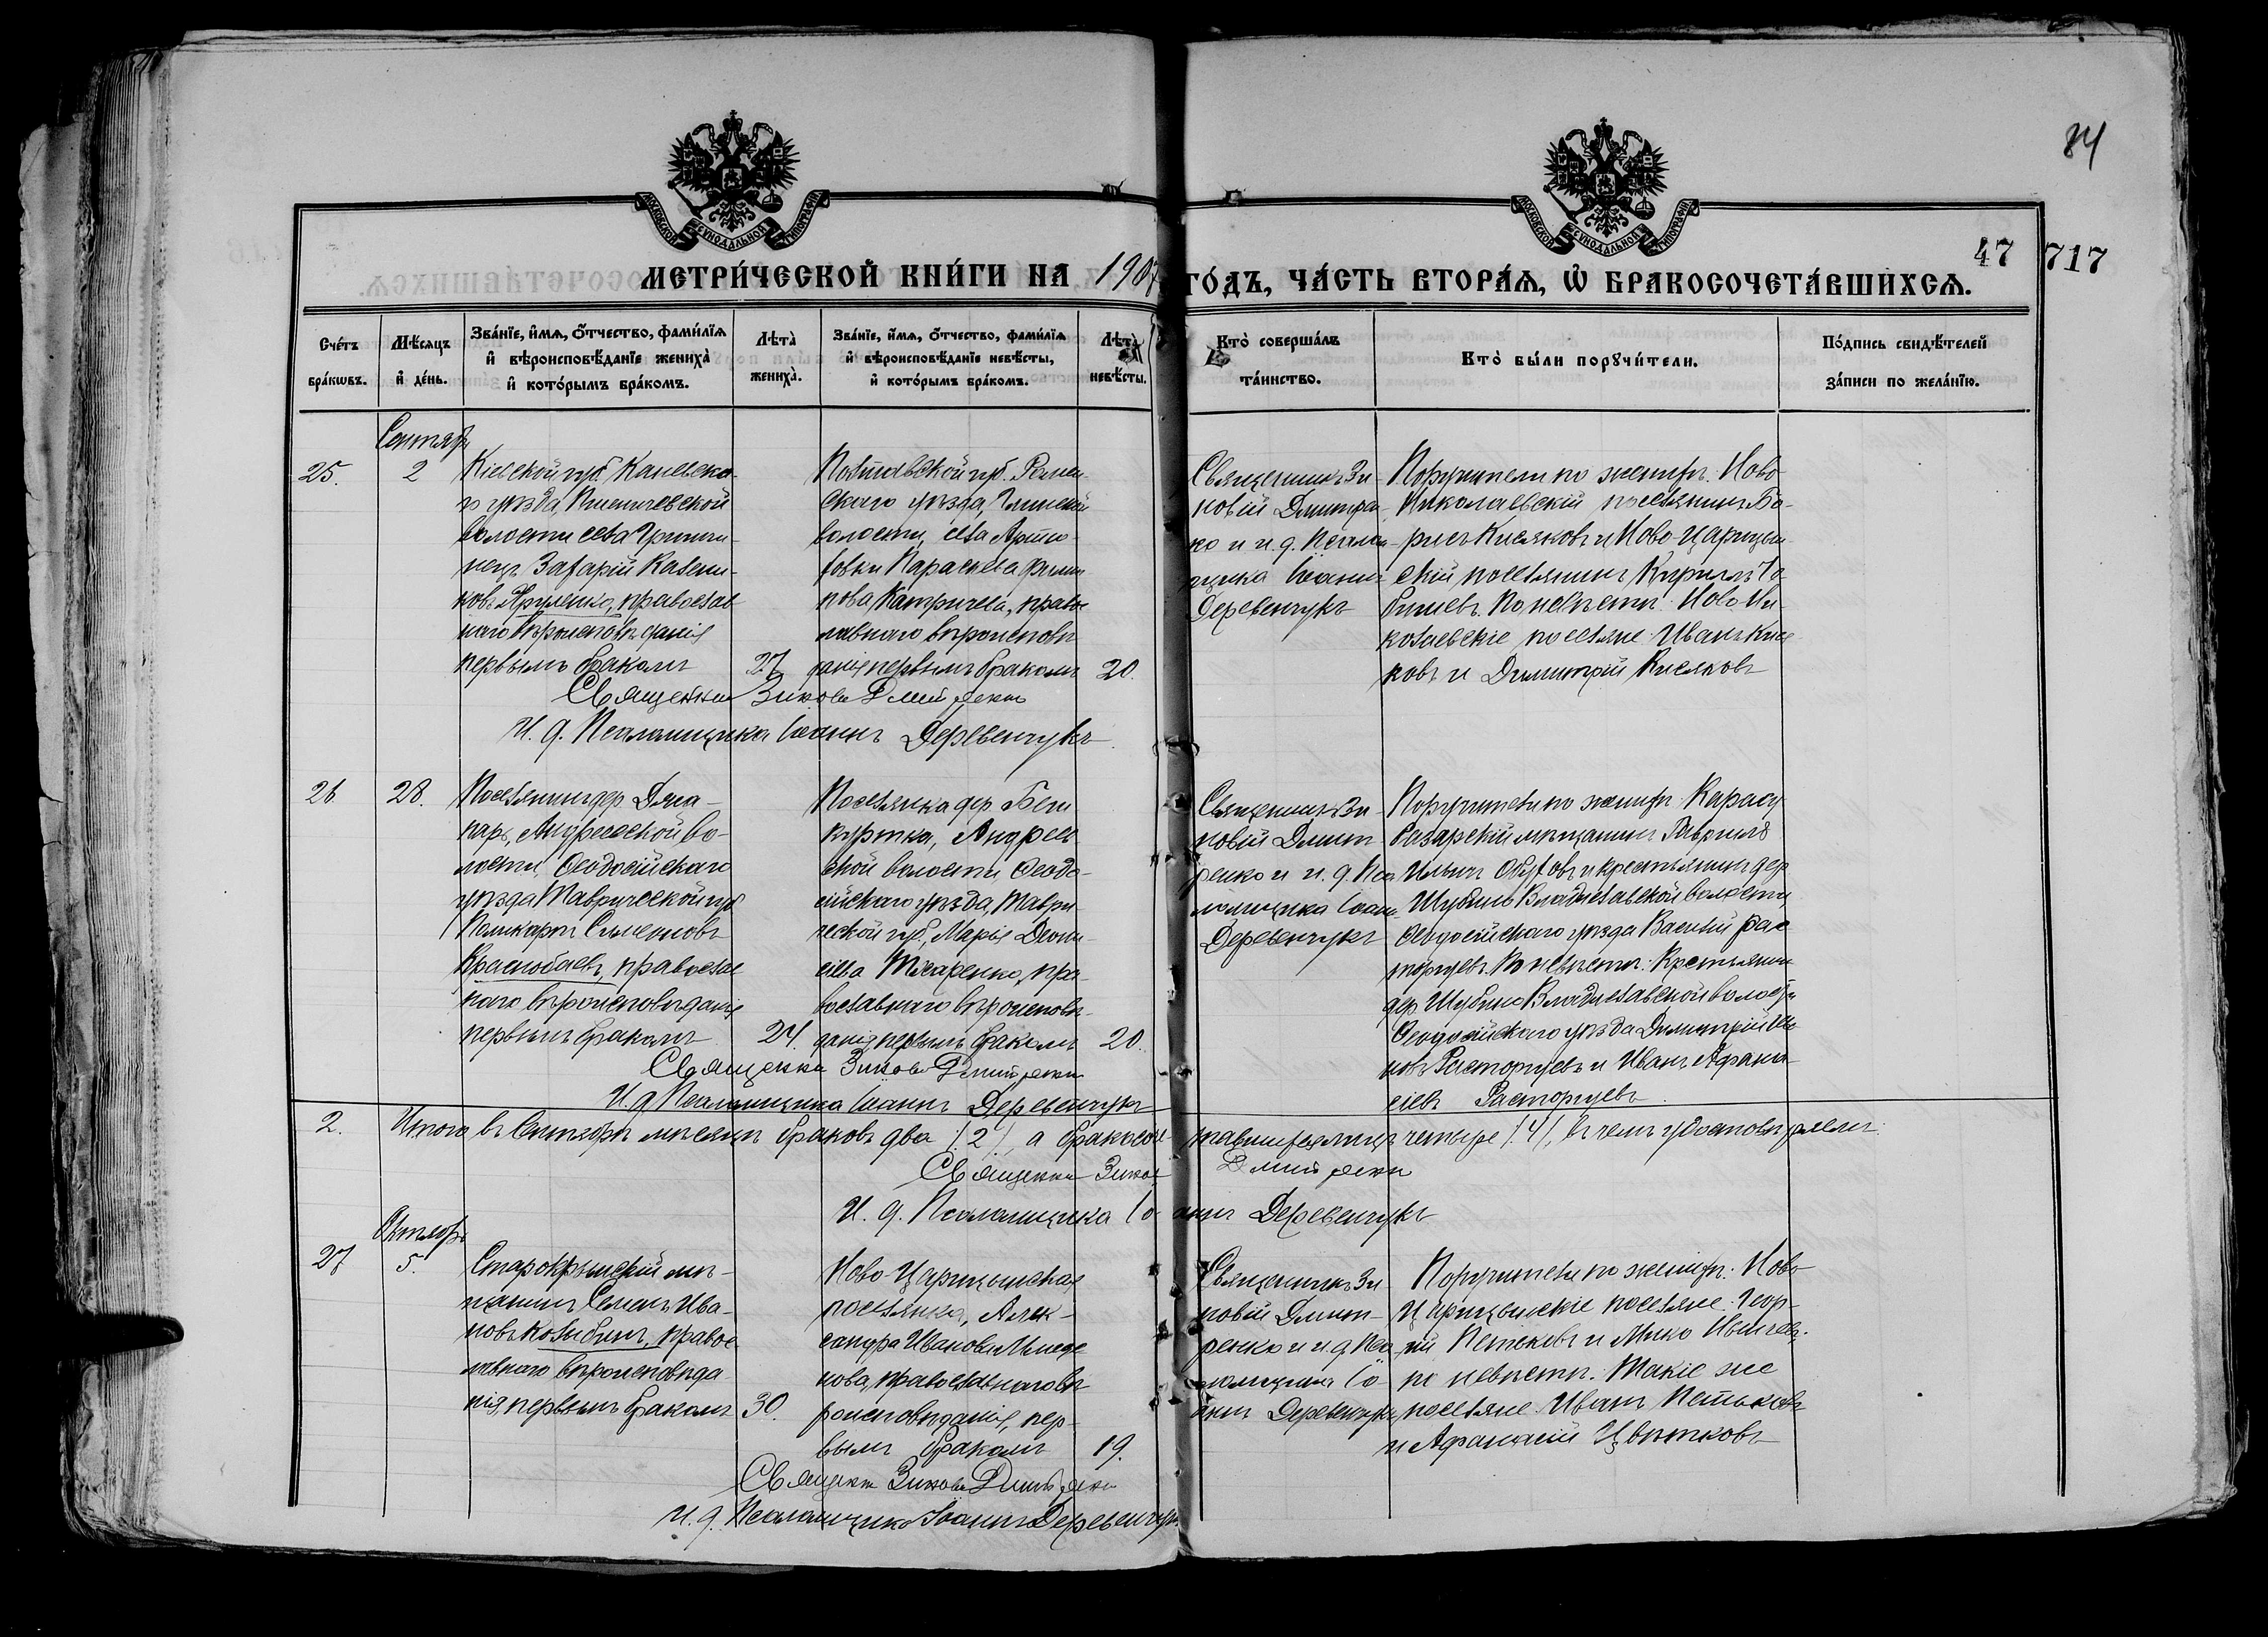 84
МОСКОВСКОЙ СУНОДАЛЬНОЙ ТИПОГРАФІИ
МОСКОВСКОЙ СУНОДАЛЬНОЙ ТИПОГРАФІИ
47 717
МЕТРИ́ЧЕСКОЙ КНИ́ГИ НА 1907 ГО́ДЪ, ЧА́СТЬ ВТОРА́Ѧ, Ѽ БРАКОСОЧЕТА́ВШИХСѦ.
Сче́тъ бра́кѡвъ.
Мѣ́сяцъ и҆ де́нь.
Зва́нїе, и҆́мѧ, ѻ҆́тчество, фами́лїѧ и҆ вѣроисповѣ́данїе жениха̀ и҆ кото́рымъ бра́комъ.
Лѣта̀ жениха̀.
Зва́нїе, и҆́мѧ, ѻ҆́тчество, фами́лїѧ и҆ вѣроисповѣ́данїе невѣ́сты, и҆ кото́рымъ бра́комъ.
Лѣта̀ невѣ́сты.
Кто̀ соверша́лъ та́инство.
Кто̀ бы́ли порꙋчи́тели.
По́дпись свидѣ́телей за́писи по жела́нїю.
Сентяб
25.
2
Кіевской губ. Каневска-
го уѣзда,
волости села
нецъ Захарій
ковъ православ
наго вѣроисповѣданія
первымъ бракомъ
27
Полтавской губ. Ромен-
скаго уѣзда, Глинской
волости, села Артю-
ховки Параскева Филип
пова православ
лавнаго вѣроисповѣ
данія первымъ бракомъ
20.
Священникъ Зи-
новій Дмитрен-
ко и и. д. Псалом-
щика Іоаннъ
Деревенчукъ
Поручители по женихѣ: Ново
Николаевскій поселянинъ Бо-
рисъ Кисяковъ и Ново-Царицын-
скій поселянинъ Кириллъ
По невѣстѣ: Ново Ни-
колаевскіе поселяне Иванъ Кися
ковъ и Димитрій Кисяковъ
Священникъ Зиновій Дмитренко
И. д. Псаломщика Іоаннъ Деревенчукъ
26.
28.
Поселянинъ дер.
Андреевской во-
лости, Ѳеодосійскаго
уѣзда Таврической губ
Поликарпъ Симеоновъ
Краснобаевъ, православ
наго вѣроисповѣданія
первымъ бракомъ
24.
Поселянка дер.
Андреев
ской волости, Ѳеодо-
сійскаго уѣзда, Таври
ческой губ., Марія Діони-
сіева пра-
вославнаго вѣроисповѣ-
данія первымъ бракомъ
20.
Священникъ Зи-
новій Дмит-
ренко и и. д. Пса
ломщика Іоан
Деревенчукъ
Поручители по женихѣ: Карасу
базарскій мѣщанинъ Гавріилъ
Ильинъ Обуховъ и крестьянинъ дер
Шубино Владиславской волости
Ѳеодосійскаго уѣзда Василій Рас
торгуевъ. По невѣстѣ: Крестьяне
дер Шубино Владиславской волости
Ѳеодосійскаго уѣзда Димитрій Ива
новъ Расторгуевъ и Иванъ Афана-
сіевъ Расторгуевъ
Священникъ Зиновій Дмитренко
И. д. Псаломщика Іоаннъ Деревенчукъ
2. Итого въ Сентябрѣ мѣсяцѣ браковъ два /2/, а бракосоче тавшихся лицъ четыре /4/, въ чемъ удостовѣряемъ:
Священникъ Зиновій Дмитренко
И. д. Псаломщика Іоаннъ Деревенчукъ
Октябрь
27
5.
Старокрымскій мѣ-
щанинъ Семенъ Ива-
новъ правос
лавнаго вѣроисповѣда
нія, первымъ бракомъ
30.
Ново-Царицынская
поселянка, Алек-
сандра Иванова
православнаго вѣ
роисповѣданія, пер-
вымъ бракомъ
19.
Священникъ Зи
новій Дмит-
ренко и и. д. Пса
ломщика Іо-
аннъ Деревенчукъ
Поручители по женихѣ: Ново
Царицынскіе поселяне: Геор-
гій Петковъ и
По невѣстѣ: Такіе же
поселяне Иванъ Петковъ
и Афанасій Цвѣтковъ
Священникъ Зиновій Дмитренко
И. д. Псаломщика Іоаннъ Деревенчукъ